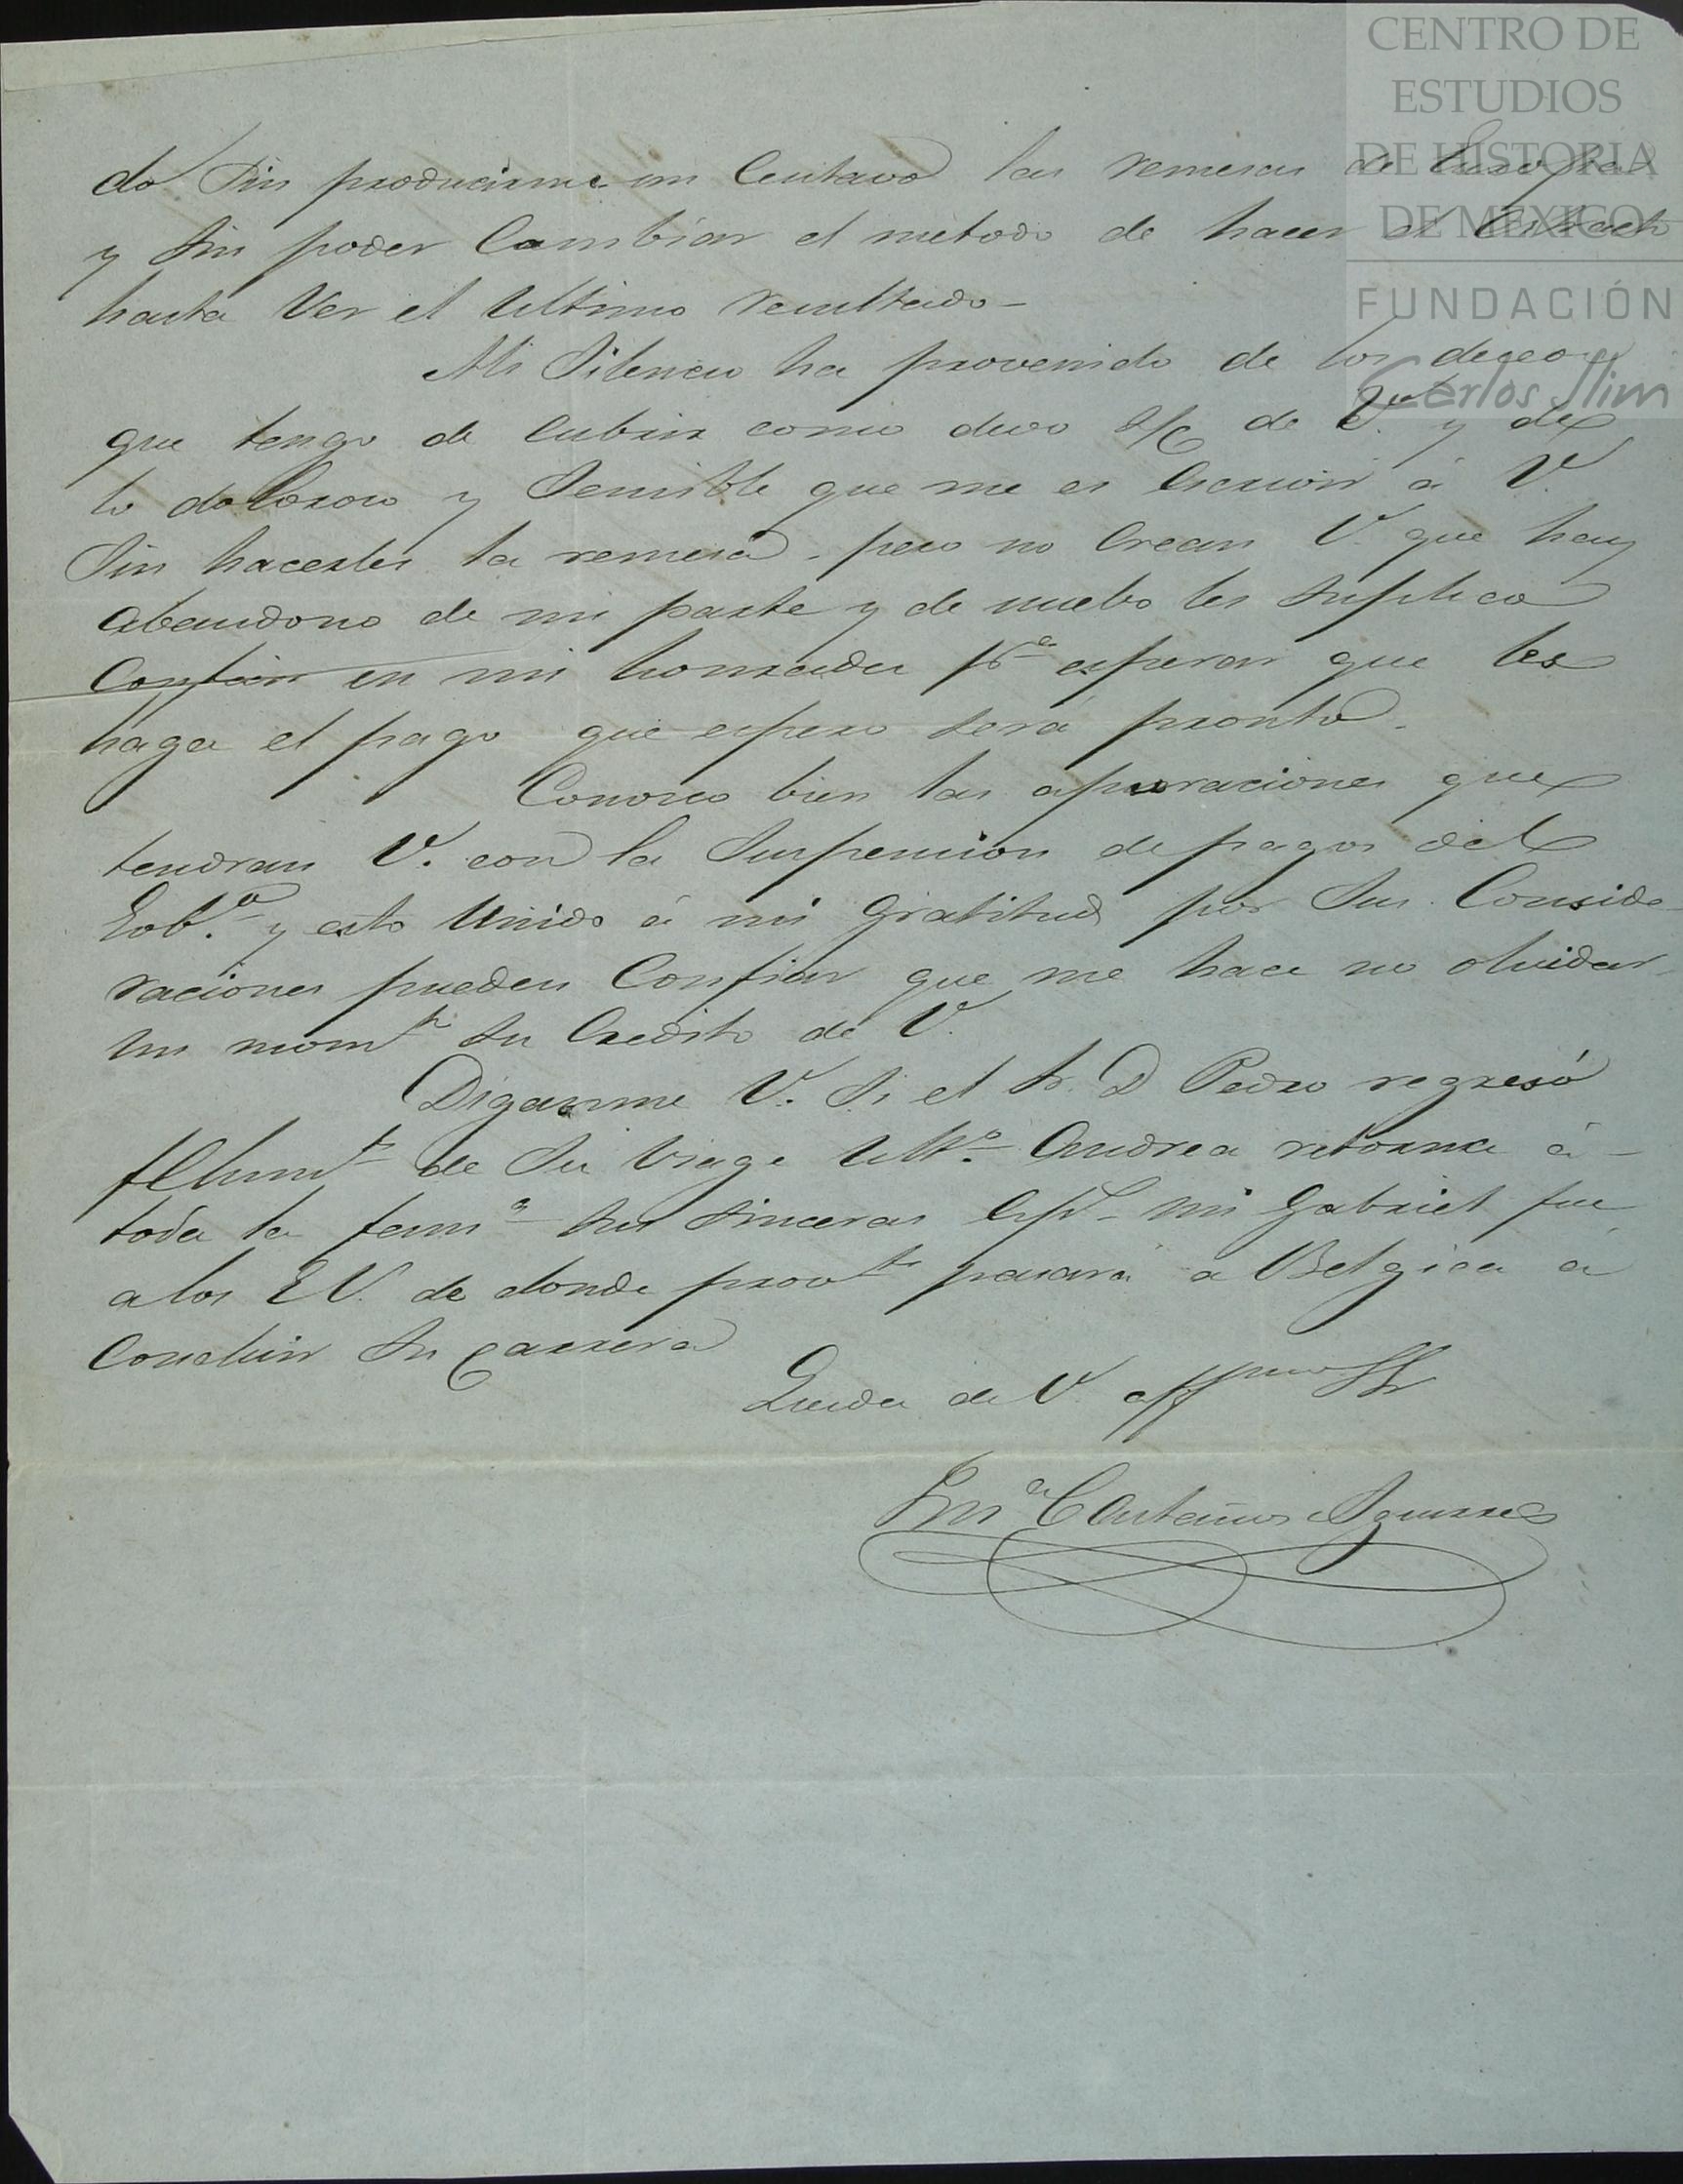 CENTRO DE
ESTUDIOS
DE HISTORIA
DE MEXICO
FUNDACIÓN
Carlos Slim
do sin producirme un Centavo las remesas de Europa
y sin poder Cambiar el metodo de hacer el
hasta Ver el Ultimo resultado -
Mi Silencio ha provenido de los deseos
que tengo de cubrir como devo S/C de V. y de
lo doloroso y Sensible que me es Escrivir á V.
Sin hacerles la remesa. pero no Crean V. que hay
Abandono de mi parte y de nuebo les suplico
Confien en mi honradez pa. esperar que les
haga el pago que espero será pronto.
Conosco bien las apuraciones que
tendran V. con la Suspension de pagos del
Gobo. y esto Unido á mi Gratitud por Sus Conside
raciones pueden Confiar que me hace no olvidar
un momto Su Credito de V.
Diganme V. Si el Sr. D Pedro regresó
felizmte de Su Viage Ulto. Andrea retorna á -
toda la fama Sus Sinceras Espe mi Gabriel fue
a los E U. de donde provte pasará a Belgica á
Concluir Su Carrera
Queda de V. affmo SS
Castaños Aguirre